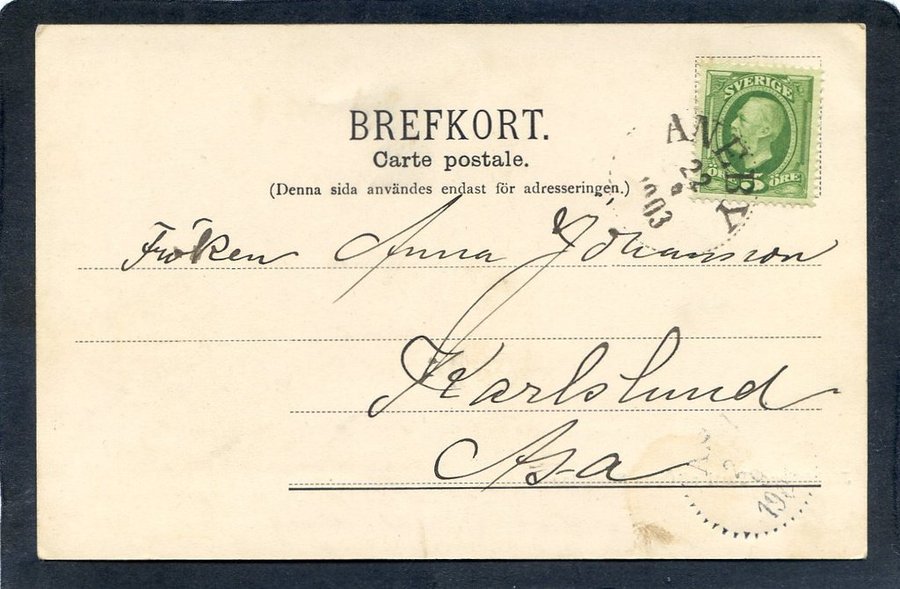 BREFKORT.
Carte postale.
(Denna sida användes endast för adresseringen.)
SVERIGE
5 ÖRE
ANEBY
22
1903
Fröken Anna Johansson
Karlslund
Asa